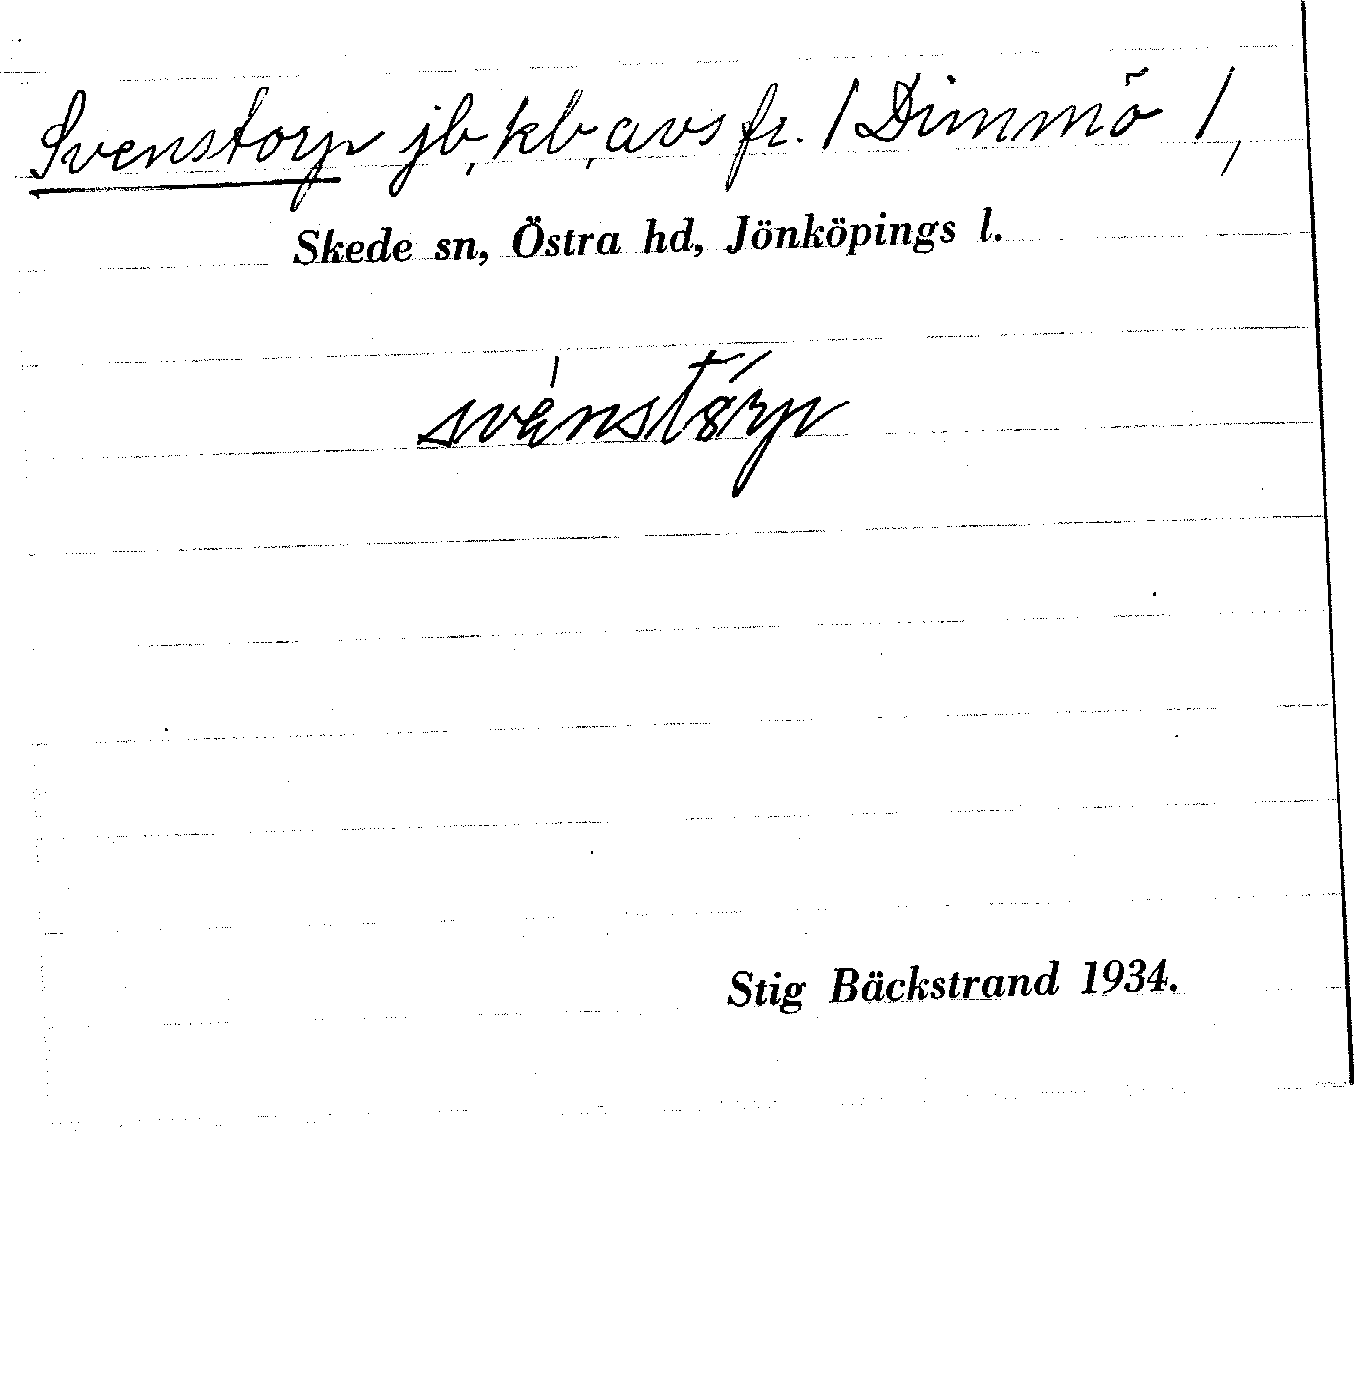 Svenstorp jb, kb, avs fr. / Dimmö /,
Skede sn, Östra hd, Jönköpings l.
Stig Bäckstrand 1934.